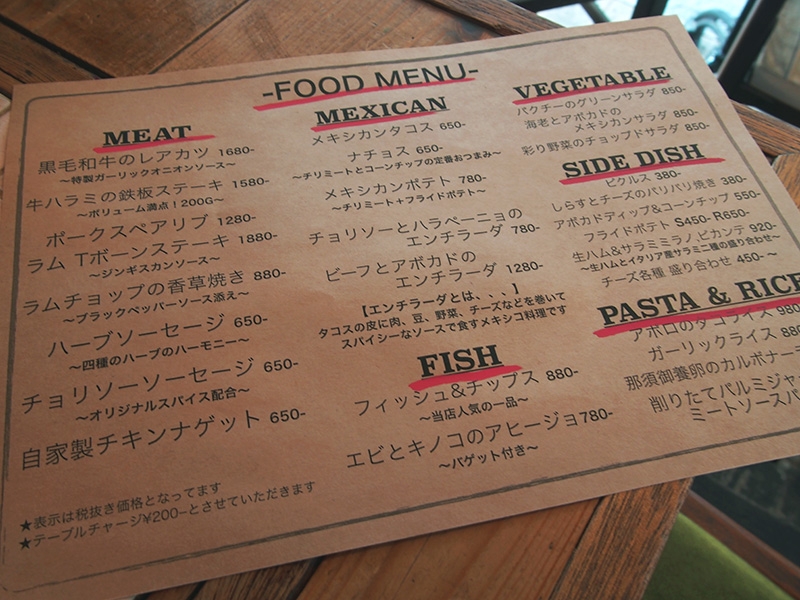 -FOOD MENU-
MEAT
黒毛和牛のレアカツ 1680-
〜特製ガーリックオニオンソース〜
牛ハラミの鉄板ステーキ 1580-
〜ボリューム満点！200G〜
ポークスペアリブ 1280-
ラム Tボーンステーキ 1880-
〜ジンギスカンソース〜
ラムチョップの香草焼き 880-
〜ブラックペッパーソース添え〜
ハーブソーセージ 650-
〜四種のハーブのハーモニー〜
チョリソーソーセージ 650-
〜オリジナルスパイス配合〜
自家製チキンナゲット 650-
★表示は税抜き価格となってます
★テーブルチャージ¥200-とさせていただきます
MEXICAN
メキシカンタコス 650-
ナチョス 650-
〜チリミートとコーンチップの定番おつまみ〜
メキシカンポテト 780-
〜チリミート＋フライドポテト〜
チョリソーとハラペーニョの
エンチラーダ 780-
ビーフとアボカドの
エンチラーダ 1280-
【エンチラーダとは、、、】
タコスの皮に肉、豆、野菜、チーズなどを巻いて
スパイシーなソースで食すメキシコ料理です
FISH
フィッシュ&チップス 880-
〜当店人気の一品〜
エビとキノコのアヒージョ780-
〜バゲット付き〜
VEGETABLE
パクチーのグリーンサラダ 850-
海老とアボカドの
メキシカンサラダ 850-
彩り野菜のチョップドサラダ 850-
SIDE DISH
ピクルス 380-
しらすとチーズのパリパリ焼き 380-
アボカドディップ&コーンチップ 550-
フライドポテト S450- R650-
生ハム&サラミミラノ、ピカンテ 920-
〜生ハムとイタリア産サラミ二種の盛り合わせ〜
チーズ各種 盛り合わせ 450- 〜
PASTA & RICE
アポロのタコライス 980
ガーリックライス 880
那須御養卵のカルボナー
削りたてパルミジャ
ミートソースパ